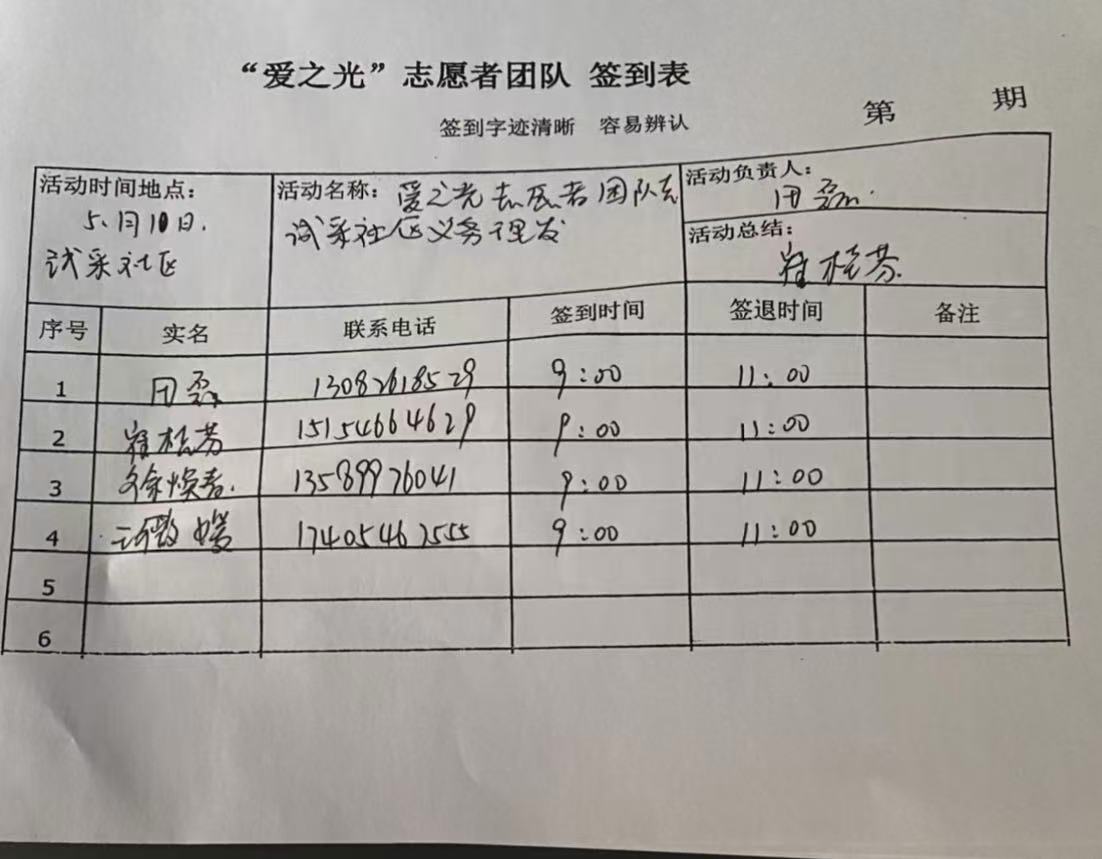 “爱之光”志愿者团队 签到表
签到字迹清晰 容易辨认
第 期
活动时间地点：
5.月10日.
试采社区
活动名称：爱之光志愿者团队去
试采社区义务理发
活动负责人：田磊.
活动总结：
崔桂芬.
序号 实名 联系电话 签到时间 签退时间 备注
1 田磊 13082618529 9:00 11:00
2 崔桂芬 15154664629 9:00 11:00
3 徐焕春. 13589976041 9:00 11:00
4 17405462555 9:00 11:00
5
6